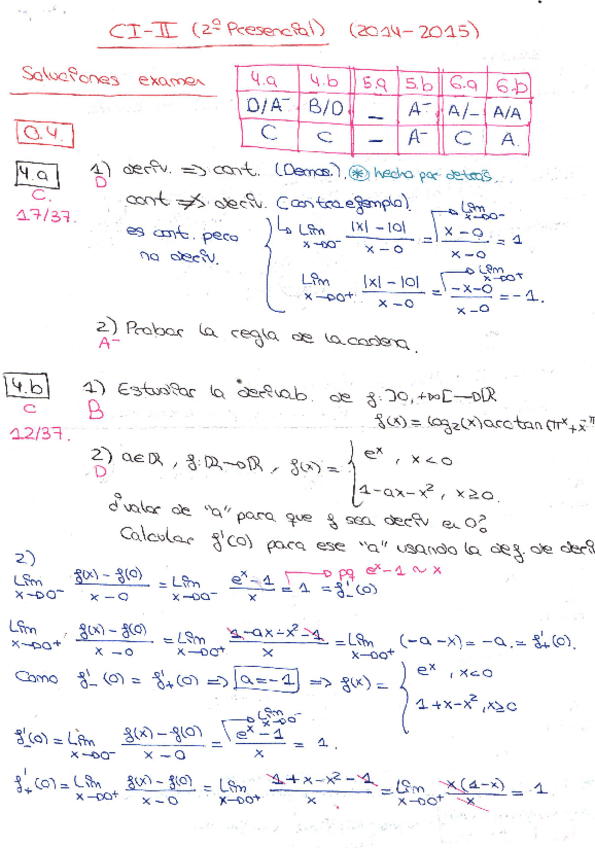 CI-II (2º Presencial) (2014-2015)
Soluciones examen
4.a 4.b 5.a 5.b 6.a 6.b
D/A⁻ B/D _ A⁻ A/- A/A
C C - A⁻ C A
Q.4.
4.a 1) deriv. => cont. (Demos.) * hecho por detrás.
D
C.
cont ≠> deriv. (contraejemplo).
17/37.
es cont. pero
no deriv.
Lim x→0⁻ |x|-|0| / x-0 = Lim x→0⁻ x-0 / x-0 = 1
Lim x→0⁺ |x|-|0| / x-0 = Lim x→0⁺ -x-0 / x-0 = -1.
2) Probar la regla de la cadena.
A⁻
4.b 1) Estudiar la derivab. de f:]0,+∞[→R
C B
f(x) = log₂(x) arctan(π^x + x^-π
12/37.
2) a∈R, f:R→R, f(x) = { e^x, x<0
D
1-ax-x², x≥0.
¿valor de "a" para que f sea deriv en 0?
Calcular f'(0) para ese "a" usando la def. de deri
2)
Lim x→0⁻ f(x)-f(0) / x-0 = Lim x→0⁻ e^x-1 / x = 1 = f'₋(0) pq e^x-1 ~ x
Lim x→0⁺ f(x)-f(0) / x-0 = Lim x→0⁺ 1-ax-x²-1 / x = Lim x→0⁺ (-a-x) = -a = f'₊(0).
Como f'₋(0) = f'₊(0) => a=-1 => f(x) = { e^x, x<0
1+x-x², x≥0
f'₋(0) = Lim x→0⁻ f(x)-f(0) / x-0 = Lim x→0⁻ e^x-1 / x = 1.
f'₊(0) = Lim x→0⁺ f(x)-f(0) / x-0 = Lim x→0⁺ 1+x-x²-1 / x = Lim x→0⁺ x(1-x) / x = 1